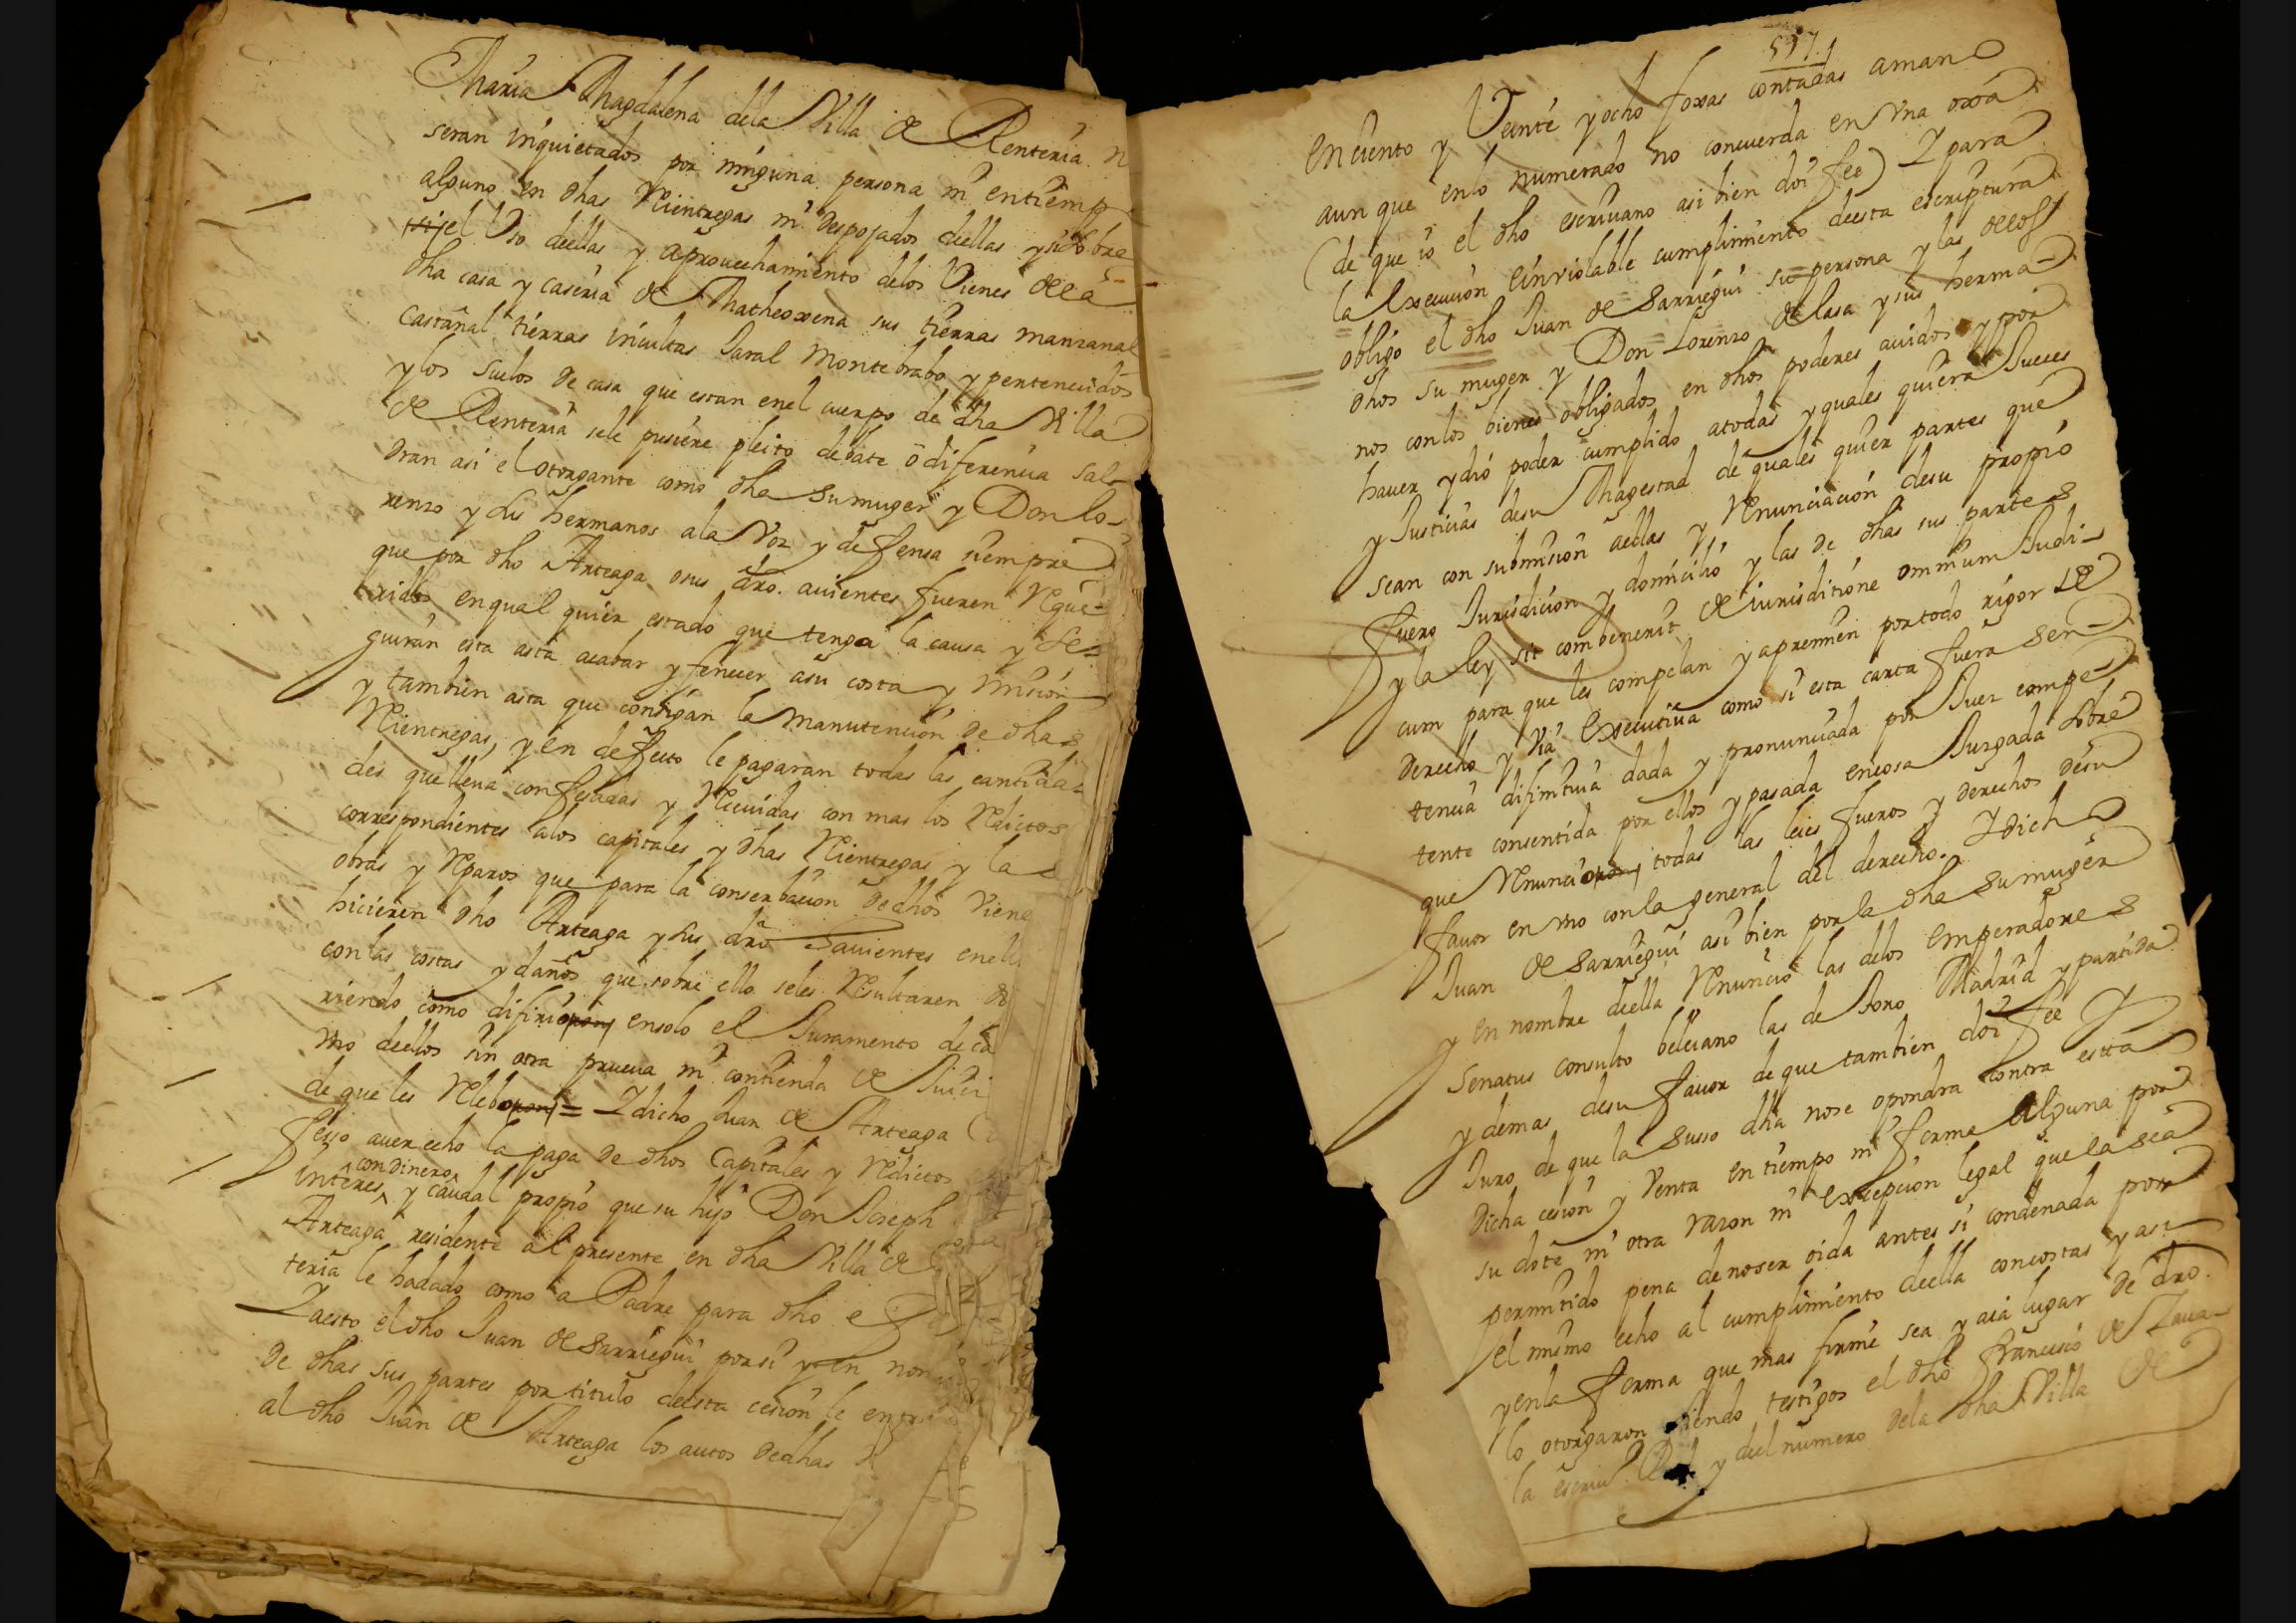 Maria Magdalena dela Villa de Renteria n
seran inquietados por ninguna persona ni entiemp
alguno en dhas Reientregas ni Despojados dellas y si sobre
el Uso dellas y aprouechamiento delos Vienes dela
dha casa y caseria de Matheoxena sus tierras manzanal
castañal tierras incultas Jaral Montebrabo y pertenecidos
y los suelos de casa que estan enel cuerpo de dha Villa
de Renteria sele pusiere pleito debate o diferencia sal-
dran asi el otorgante como dha su muger y Don Lo-
renzo y sus hermanos ala Voz y defensa siempre
que por dho Arteaga o sus dro. auientes fueren Reque-
ridos en qual quier estado que tenga la causa y se-
guiran esta asta acabar y fenecer asu costa y mision
y tambien asta que consigan la Manutencion de dhas
Reientregas, y en defecto le pagaran todas las cantida-
des que lleua confesadas y Reciuidas con mas los Reditos
correspondientes alos capitales y dhas Reientregas y las
obras y Reparos que para la conserbacion de dhos Viene
hicieren dho Arteaga y sus dro auientes enell
con las costas y daños que sobre ello seles Resultaren di
riendo como difirieron ensolo el Juramento de ca
uno dellos sin otra prueua ni contienda de Juici
de que les Releboron = Y dicho Juan de Arteaga
feso auer echo la paga de dhos Capitales y Reditos
condinero
interes y caudal propio que su hijo Don Joseph
Arteaga residente al presente en dha Villa de
teria le ha dado como a Padre para dho e
Y aesto el dho Juan de Sarriegui por si y en nom
de dhas sus partes por titulo desta cesion le entre
al dho Juan de Arteaga los autos de dhas
517
en ciento y Veinte y ocho foxas contadas a mano
aunque enlo numerado no concuerda en Una oxa
(de que io el dho escriuano asi bien doi fee) Y para
la Execucion e inviolable cumplimiento desta escriptura
obligo el dho Juan de Sarriegui su persona y las delos
dhos su muger y Don Lorenzo de lasa y sus herma-
nos con los bienes obligados en dhos poderes auidos y por
hauer y dio poder cumplido a todas y quales quiera Jueces
y Justicias desu Magestad de quales quier partes que
sean con submision aellas y Renunciacion desu propio
fuero Jurisdicion y domicilio y las de dhas sus partes
y la ley sit combenerit de iurisditione omnium Judi-
cum para que les compelan y apremien por todo rigor de
Derecho y Via Executiua como si esta carta fuera sen-
tencia difinitiua dada y pronunciada por Juez compe-
tente consentida por ellos y pasada en cosa Juzgada sobre
que Renuncioron todas las leies fueros y derechos desu
fauor en uno con la general del derecho. Y dicho
Juan de Sarriegui asi bien por la dha su muger
y en nombre della Renuncio las delos emperadores
senatus consulto beleiano las de Toro Madrid y partida
y demas desu fauor de que tambien doi fee Y
Juro de que la susso dha no se opondra contra esta
dicha cesion y Venta en tiempo ni forma alguna por
su dote ni otra razon ni excepcion legal que la sea
permitido pena de noser oida antes si condenada por
el mismo echo al cumplimiento della con costas y asi
y en la forma que mas firme sea y aia lugar de dro.
lo otorgaron siendo testigos el dho Francisco de Zaua-
la escriu.º Rl y del numero dela dha Villa de